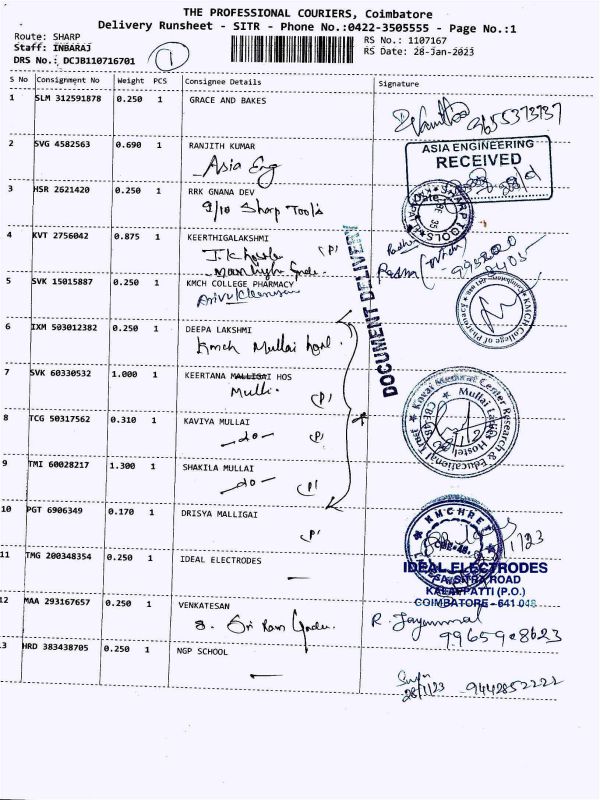 THE PROFESSIONAL COURIERS, Coimbatore
Delivery Runsheet - SITR - Phone No.:0422-3505555 - Page No.:1
Route: SHARP
Staff: INBARAJ
DRS No.: DCJB110716701
1
RS No.: 1107167
RS Date: 28-Jan-2023
S No Consignment No Weight PCS Consignee Details Signature
1 SLM 312591878 0.250 1 GRACE AND BAKES
2 SVG 4582563 0.690 1 RANJITH KUMAR
Asia Eng
ASIA ENGINEERING
RECEIVED
Date
3 HSR 2621420 0.250 1 RRK GNANA DEV
9/10 Sharp Tools
4 KVT 2756042 0.875 1 KEERTHIGALAKSHMI
(P)
5 SVK 15015887 0.250 1 KMCH COLLEGE PHARMACY
KMCH College of Pharmacy
DOCUMENT DELIVERY
6 IXM 503012382 0.250 1 DEEPA LAKSHMI
Kmch Mullai
7 SVK 60330532 1.000 1 KEERTANA MALLIGAI HOS
Mulli.
(P)
Kovai Medical Center Research & Educational Trust
Mullai Ladies Hostel
8 TCG 50317562 0.310 1 KAVIYA MULLAI
-do- (P)
9 TMI 60028217 1.300 1 SHAKILA MULLAI
-do- (P)
10 PGT 6906349 0.170 1 DRISYA MALLIGAI
(P)
KMCHRET
11 TMG 200348354 0.250 1 IDEAL ELECTRODES
IDEAL ELECTRODES
ROAD
KALAPPATTI (P.O.)
COIMBATORE - 641 048
12 MAA 293167657 0.250 1 VENKATESAN
Sri Ram
R. Jayammal
13 HRD 383438705 0.250 1 NGP SCHOOL
28/1/23 9442852222